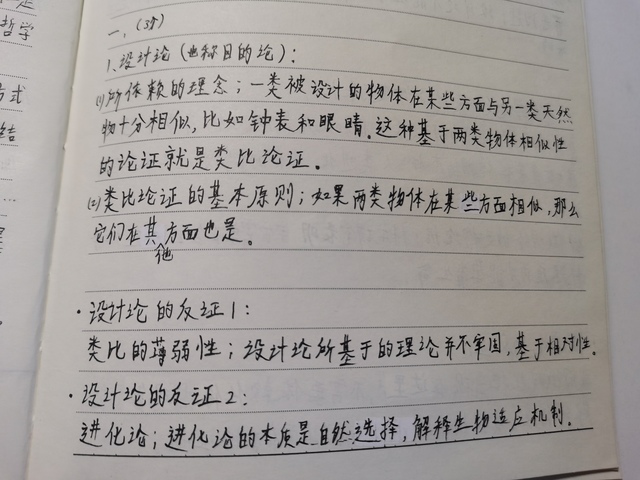 哲学
方式
结
...
一、(37)
1、设计论(也称目的论)：
(1)所依赖的理念；一类被设计的物体在某些方面与另一类天然
物十分相似，比如钟表和眼睛。这种基于两类物体相似性
的论证就是类比论证。
(2)类比论证的基本原则；如果两类物体在某些方面相似，那么
它们在其他方面也是。
·设计论的反证1：
类比的薄弱性；设计论所基于的理论并不牢固，基于相对性。
·设计论的反证2：
进化论；进化论的本质是自然选择，解释生物适应机制。